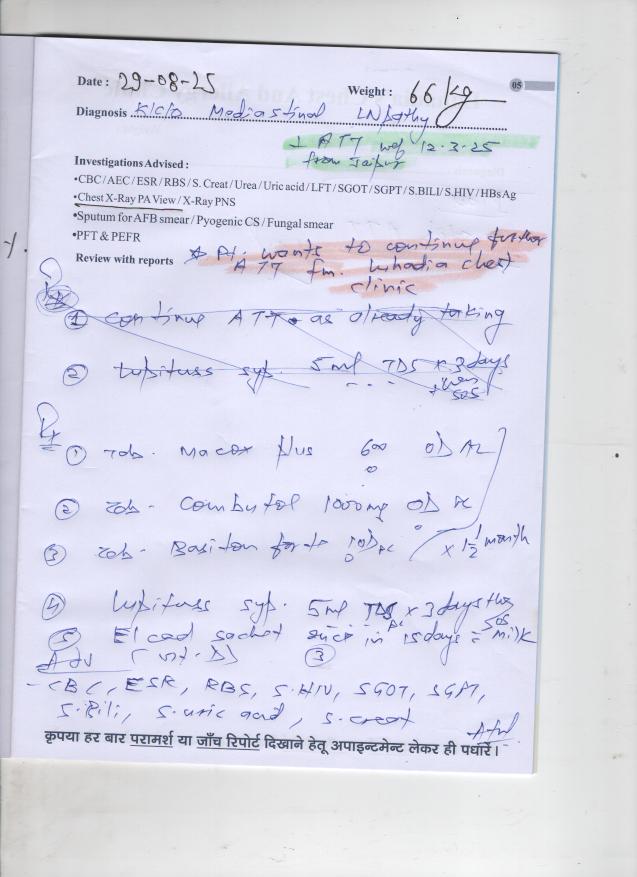 05
Date : 29-08-25 Weight : 66 kg
Diagnosis K/C/O Mediastinal LNpathy
ATT wef 12.3.25
from Jaipur
Investigations Advised :
•CBC / AEC / ESR / RBS / S. Creat / Urea / Uric acid / LFT / SGOT / SGPT / S.BILI / S.HIV / HBs Ag
•Chest X-Ray PA View / X-Ray PNS
•Sputum for AFB smear / Pyogenic CS / Fungal smear
•PFT & PEFR
Review with reports * Pt. wants to continue further
ATT fm. chest
clinic
Rx
① continue ATT as already taking
② Lupituss syp. 5ml TDS x 3 days
then
SOS
Rx
① Tab. Macox plus 600 OD
② Tab. Combutol 1000mg OD
③ Tab. forte OD x 1 1/2 month
④ Lupituss syp. 5ml TDS x 3 days then
SOS
⑤ sachet once in 15 days c milk
Adv (vit. D) ③
- CBC, ESR, RBS, S.HIV, SGOT, SGPT,
S.Bili, S.uric acid, S.creat
कृपया हर बार परामर्श या जाँच रिपोर्ट दिखाने हेतू अपाइन्टमेन्ट लेकर ही पधारें।